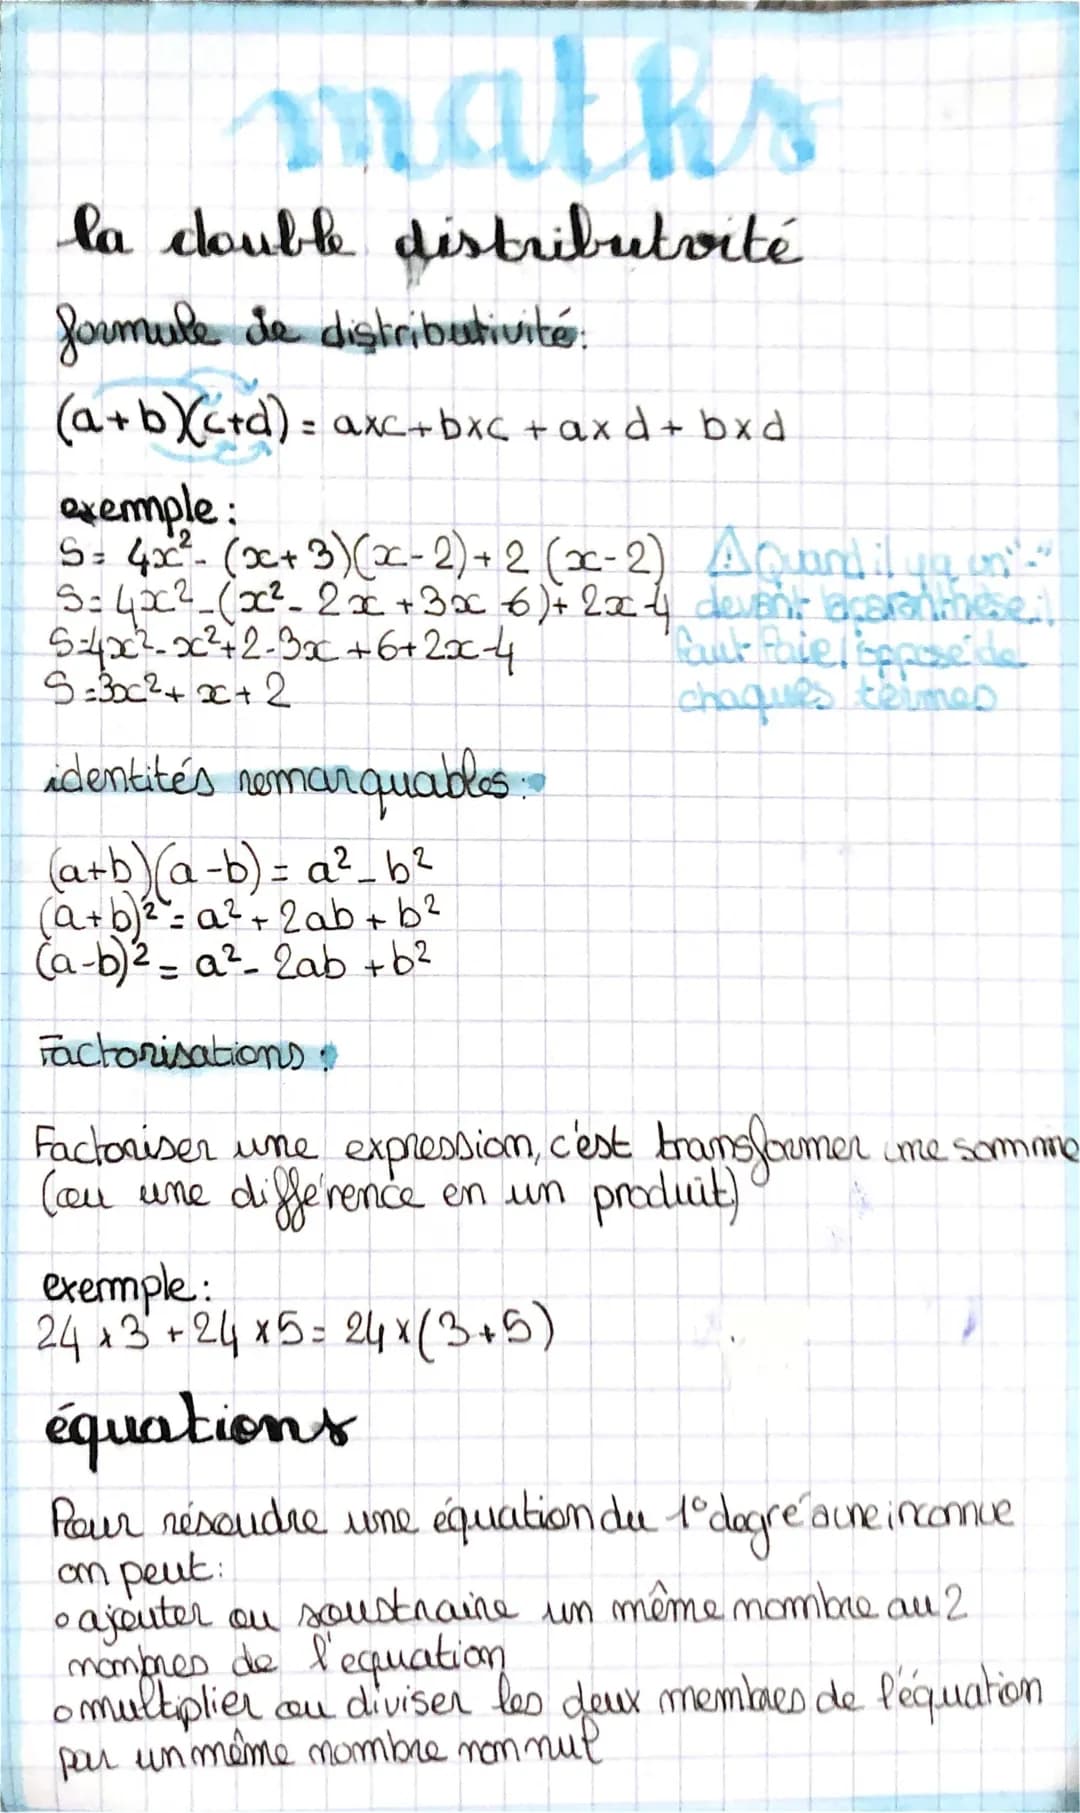 maths
la double distributvité
formule de distributivité:
(a+b)(c+d) = axc+bxc + axd + bxd
exemple:
S = 4x² - (x+3)(x-2) + 2 (x-2)
S = 4x² - (x² - 2x + 3x - 6) + 2x - 4
S = 4x² - x² + 2 - 3x + 6 + 2x - 4
S = 3x² + x + 2
⚠ Quand il ya un "-"
devant la paranthèse il
faut faie l'opposé de
chaques termes
identités remarquables:
(a+b)(a-b) = a² - b²
(a+b)² = a² + 2ab + b²
(a-b)² = a² - 2ab + b²
Factorisations:
Factoriser une expression, c'est transformer une somme
(ou une différence en un produit)
exemple:
24 x 3 + 24 x 5 = 24 x (3+5)
équations
Pour résoudre une équation du 1° degré à une inconnue
on peut:
o ajouter ou soustraire un même nombre au 2
membres de l'equation
o multiplier ou diviser les deux membres de l'équation
par un même nombre non nul